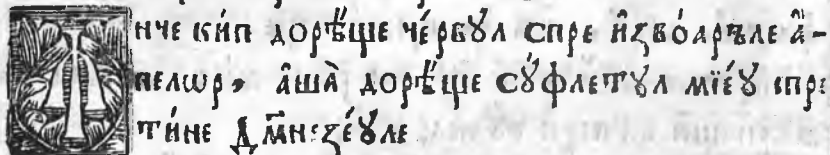 Ꙟнче ки́п дорѣ́ще че́рбꙋл спре и҆зво́арѣле а҆-
пелѡр, а҆ша̀ дорѣ́ще сꙋ́флетꙋл мїе́ꙋ спре
ти́не Дм҃незе́ꙋле